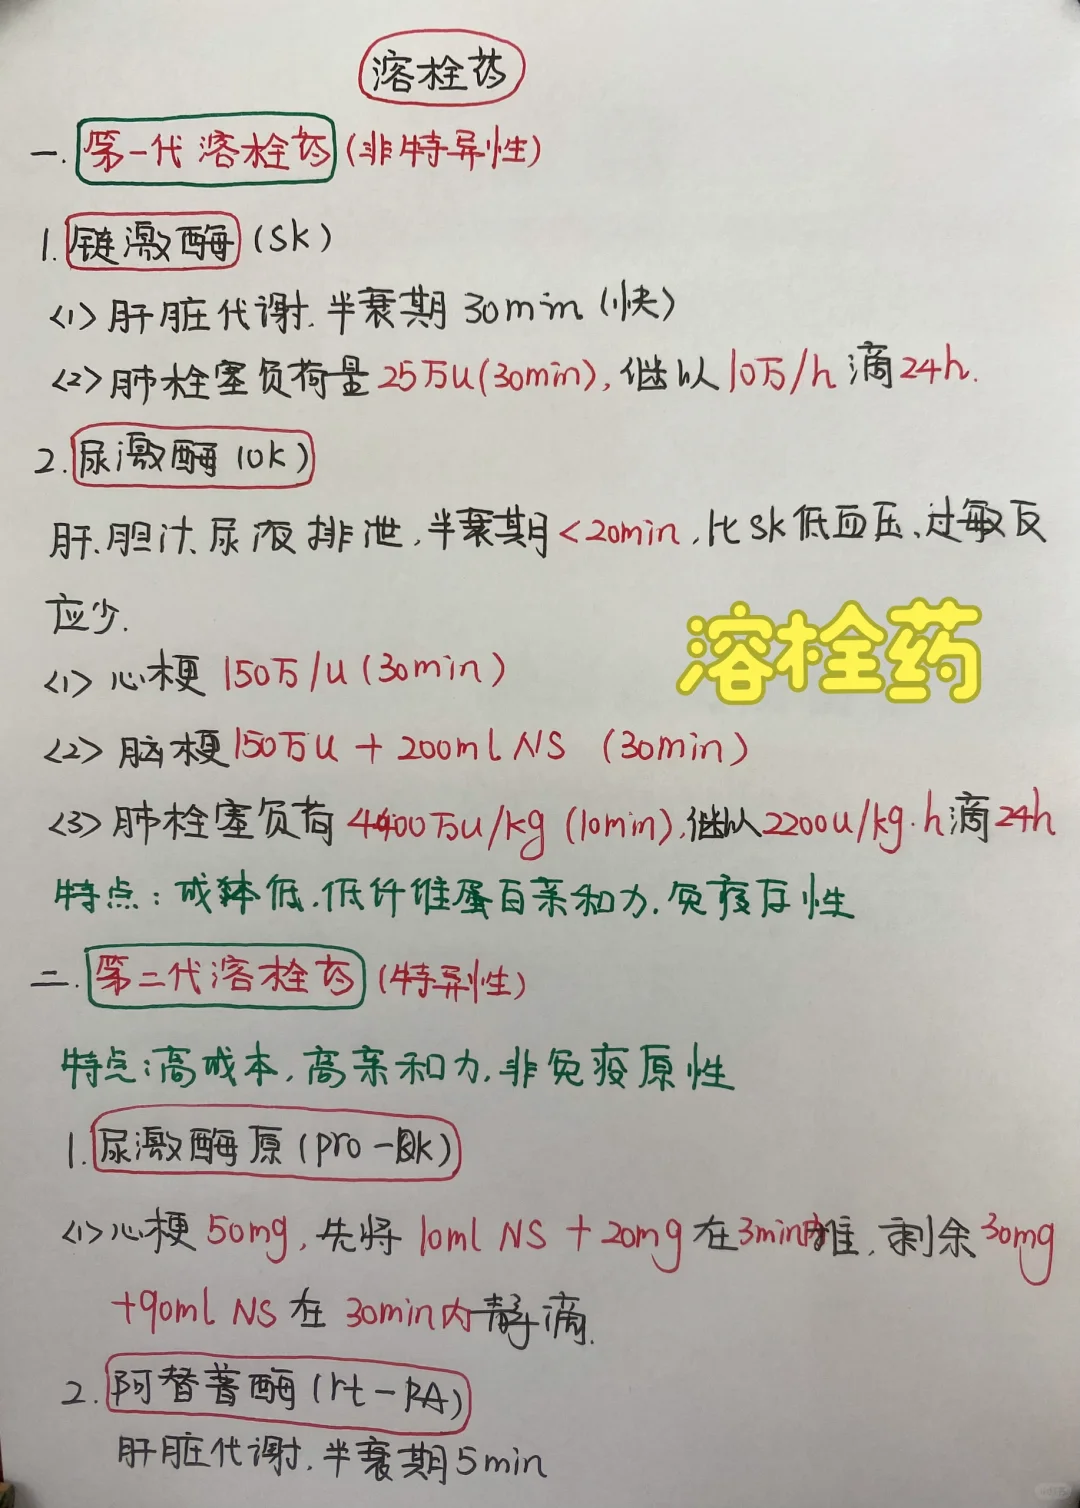 溶栓药
一. 第一代溶栓药(非特异性)
1. 链激酶(SK)
<1>肝脏代谢.半衰期30min(快)
<2>肺栓塞负荷量25万U(30min),继以10万/h滴24h.
2. 尿激酶(UK)
肝、胆汁、尿液排泄,半衰期<20min,比SK低血压、过敏反
应少.
溶栓药
<1>心梗 150万/U(30min)
<2>脑梗150万U+200ml NS (30min)
<3>肺栓塞负荷4400万U/kg(10min),继以2200U/kg·h滴24h
特点:成本低.低纤维蛋白亲和力.免疫原性
二. 第二代溶栓药(特异性)
特点:高成本.高亲和力.非免疫原性
1. 尿激酶原(pro-UK)
<1>心梗 50mg,先将10ml NS+20mg在3min内推,剩余30mg
+90ml NS在30min内静滴.
2. 阿替普酶(rt-PA)
肝脏代谢.半衰期5min